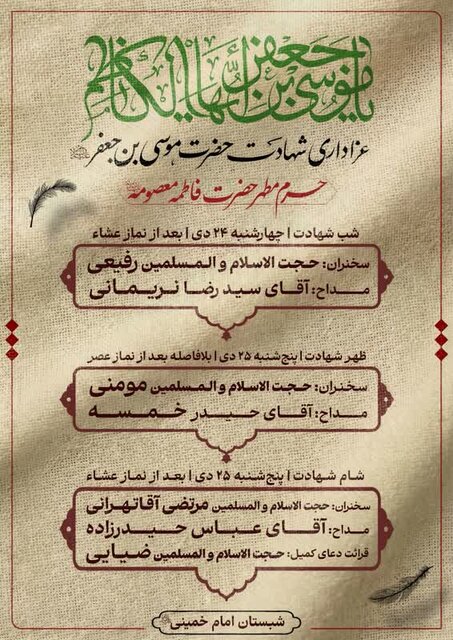 یا موسی بن جعفر ایها الکاظم
عزاداری شهادت حضرت موسی بن جعفر
حرم مطهر حضرت فاطمه معصومه
شب شهادت | چهارشنبه ۲۴ دی | بعد از نماز عشاء
سخنران: حجت الاسلام و المسلمین رفیعی
مداح: آقای سید رضا نریمانی
ظهر شهادت | پنج‌شنبه ۲۵ دی | بلافاصله بعد از نماز عصر
سخنران: حجت الاسلام و المسلمین مومنی
مداح: آقای حیدر خمسه
شام شهادت | پنج‌شنبه ۲۵ دی | بعد از نماز عشاء
سخنران: حجت الاسلام و المسلمین مرتضی آقاتهرانی
مداح: آقای عباس حیدرزاده
قرائت دعای کمیل: حجت الاسلام و المسلمین ضیایی
شبستان امام خمینی